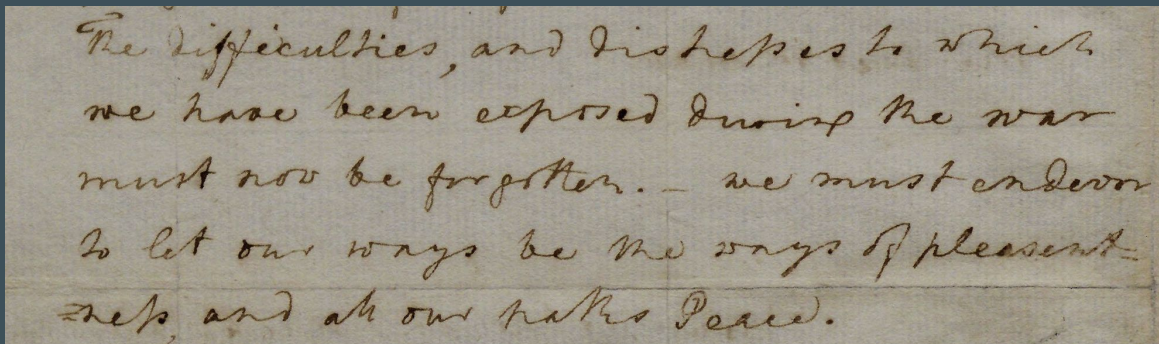 The difficulties, and distresses to which
we have been exposed during the war
must now be forgotten. – we must endevor
to let our ways be the ways of pleasent-
=ness, and all our paths Peace.